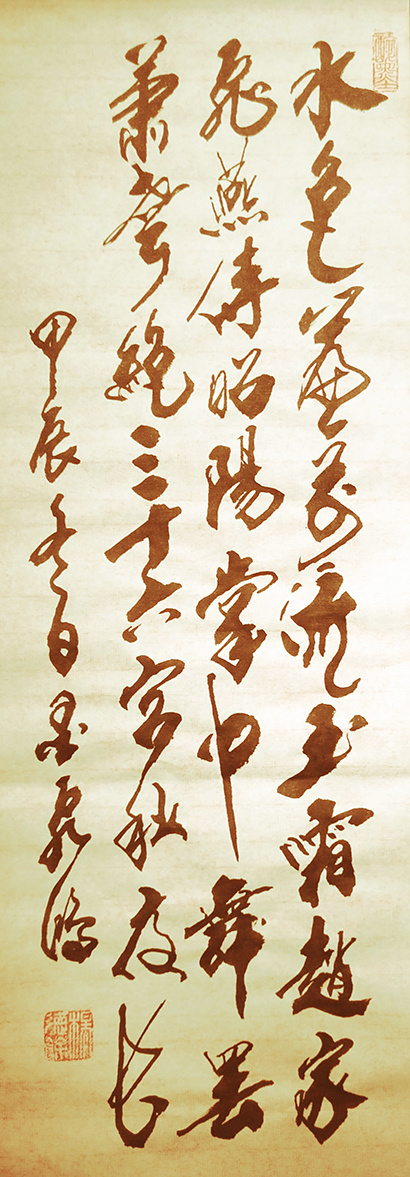 水色簾前流玉霜趙家
飛燕侍昭陽掌中舞罷
簫聲絕三十六宮秋夜長
甲辰冬日墨泉